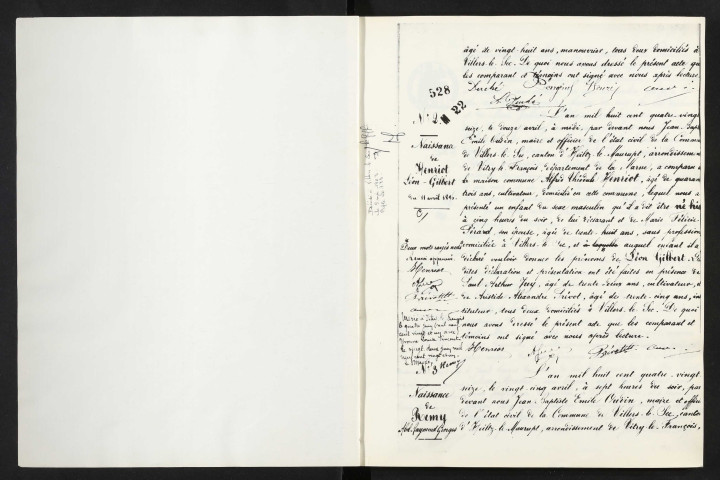 âgé de vingt-huit ans, manouvrier, tous deux domiciliés à
Villers-le-Sec. De quoi nous avons dressé le présent acte que
les comparant et témoins ont signé avec nous après lecture.
528
22
L'an mil huit cent quatre-vingt
seize, le douze avril, à midi, par devant nous Jean-Baptiste
Emile Oudin, maire et officier de l'état civil de la Commune
de Villers-le-Sec, canton d'Heiltz-le-Maurupt, arrondissement
de Vitry-le-François, département de la Marne, a comparu en
la maison commune Alfred Henriot, âgé de quarante
trois ans, cultivateur, domicilié en cette commune, lequel nous a
présenté un enfant du sexe masculin qu'il a dit être né hier
à cinq heures du soir, de lui déclarant et de Marie
Gérard, son épouse, âgée de trente-huit ans, sans profession
domiciliée à Villers-le-Sec, et auquel enfant il a
déclaré vouloir donner les prénoms de Léon Gilbert. Les
dites déclaration et présentation ont été faites en présence de
Paul Arthur, âgé de trente-cinq ans, cultivateur, et
de Aristide Alexandre Prévot, âgé de trente-cinq ans, ins
tituteur, tous deux domiciliés à Villers-le-Sec. De quoi
nous avons dressé le présent acte que les comparant et
témoins ont signé avec nous après lecture.
Henriot
Naissance
de
Henriot
Léon-Gilbert
du 11 avril 1896
Deux mots rayés nuls
Henriot
N° 3
Naissance
de
Remy
L'an mil huit cent quatre-vingt
seize, le vingt-cinq avril, à sept heures du soir, par
devant nous Jean-Baptiste Emile Oudin, maire et officier
de l'état civil de la Commune de Villers-le-Sec, canton
d'Heiltz-le-Maurupt, arrondissement de Vitry-le-François,